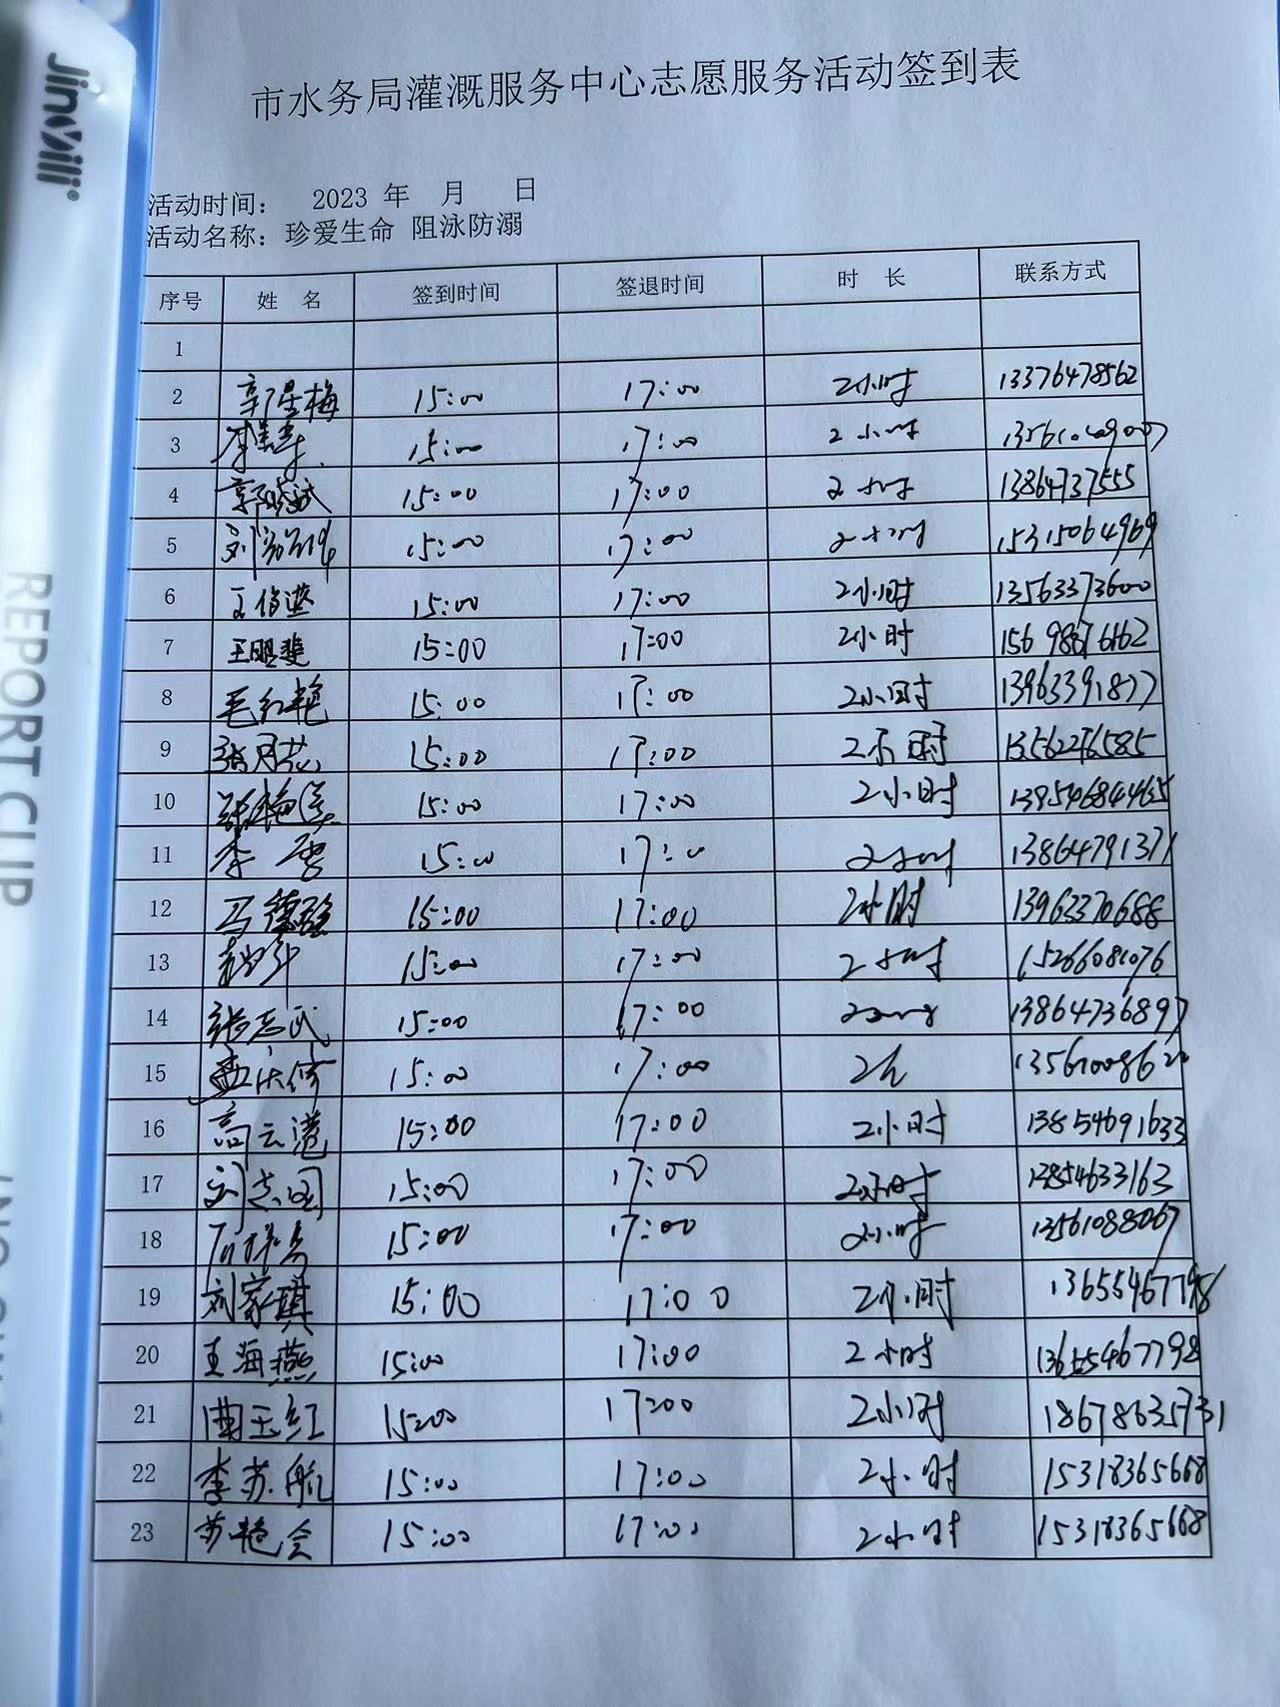 Jinbili®
REPORT CLIP
市水务局灌溉服务中心志愿服务活动签到表
活动时间： 2023 年 月 日
活动名称：珍爱生命 阻泳防溺
序号 姓 名 签到时间 签退时间 时 长 联系方式
1
2 郭星梅 15:00 17:00 2小时 13376478562
3 15:00 17:00 2小时
4 15:00 17:00 2小时 13864737555
5 15:00 17:00 2小时 15315064969
6 15:00 17:00 2小时 13563373600
7 王明斐 15:00 17:00 2小时 15698676162
8 毛红艳 15:00 17:00 2小时 13963391877
9 张月芯 15:00 17:00 2小时 13562276585
10 15:00 17:00 2小时
11 李雪 15:00 17:00 2小时 13864791371
12 15:00 17:00 2小时 13963370688
13 15:00 17:00 2小时 15266081076
14 张志武 15:00 17:00 2小时 13864736897
15 孟庆修 15:00 17:00 2h
16 高云港 15:00 17:00 2小时 13854691633
17 刘志国 15:00 17:00 2小时 13854633163
18 15:00 17:00 2小时 13561088067
19 刘家琪 15:00 17:00 2小时 13655467798
20 王海燕 15:00 17:00 2小时 13655467798
21 曲玉红 15:00 17:00 2小时 18678635731
22 李苏航 15:00 17:00 2小时 15318365668
23 苏艳会 15:00 17:00 2小时 15318365668